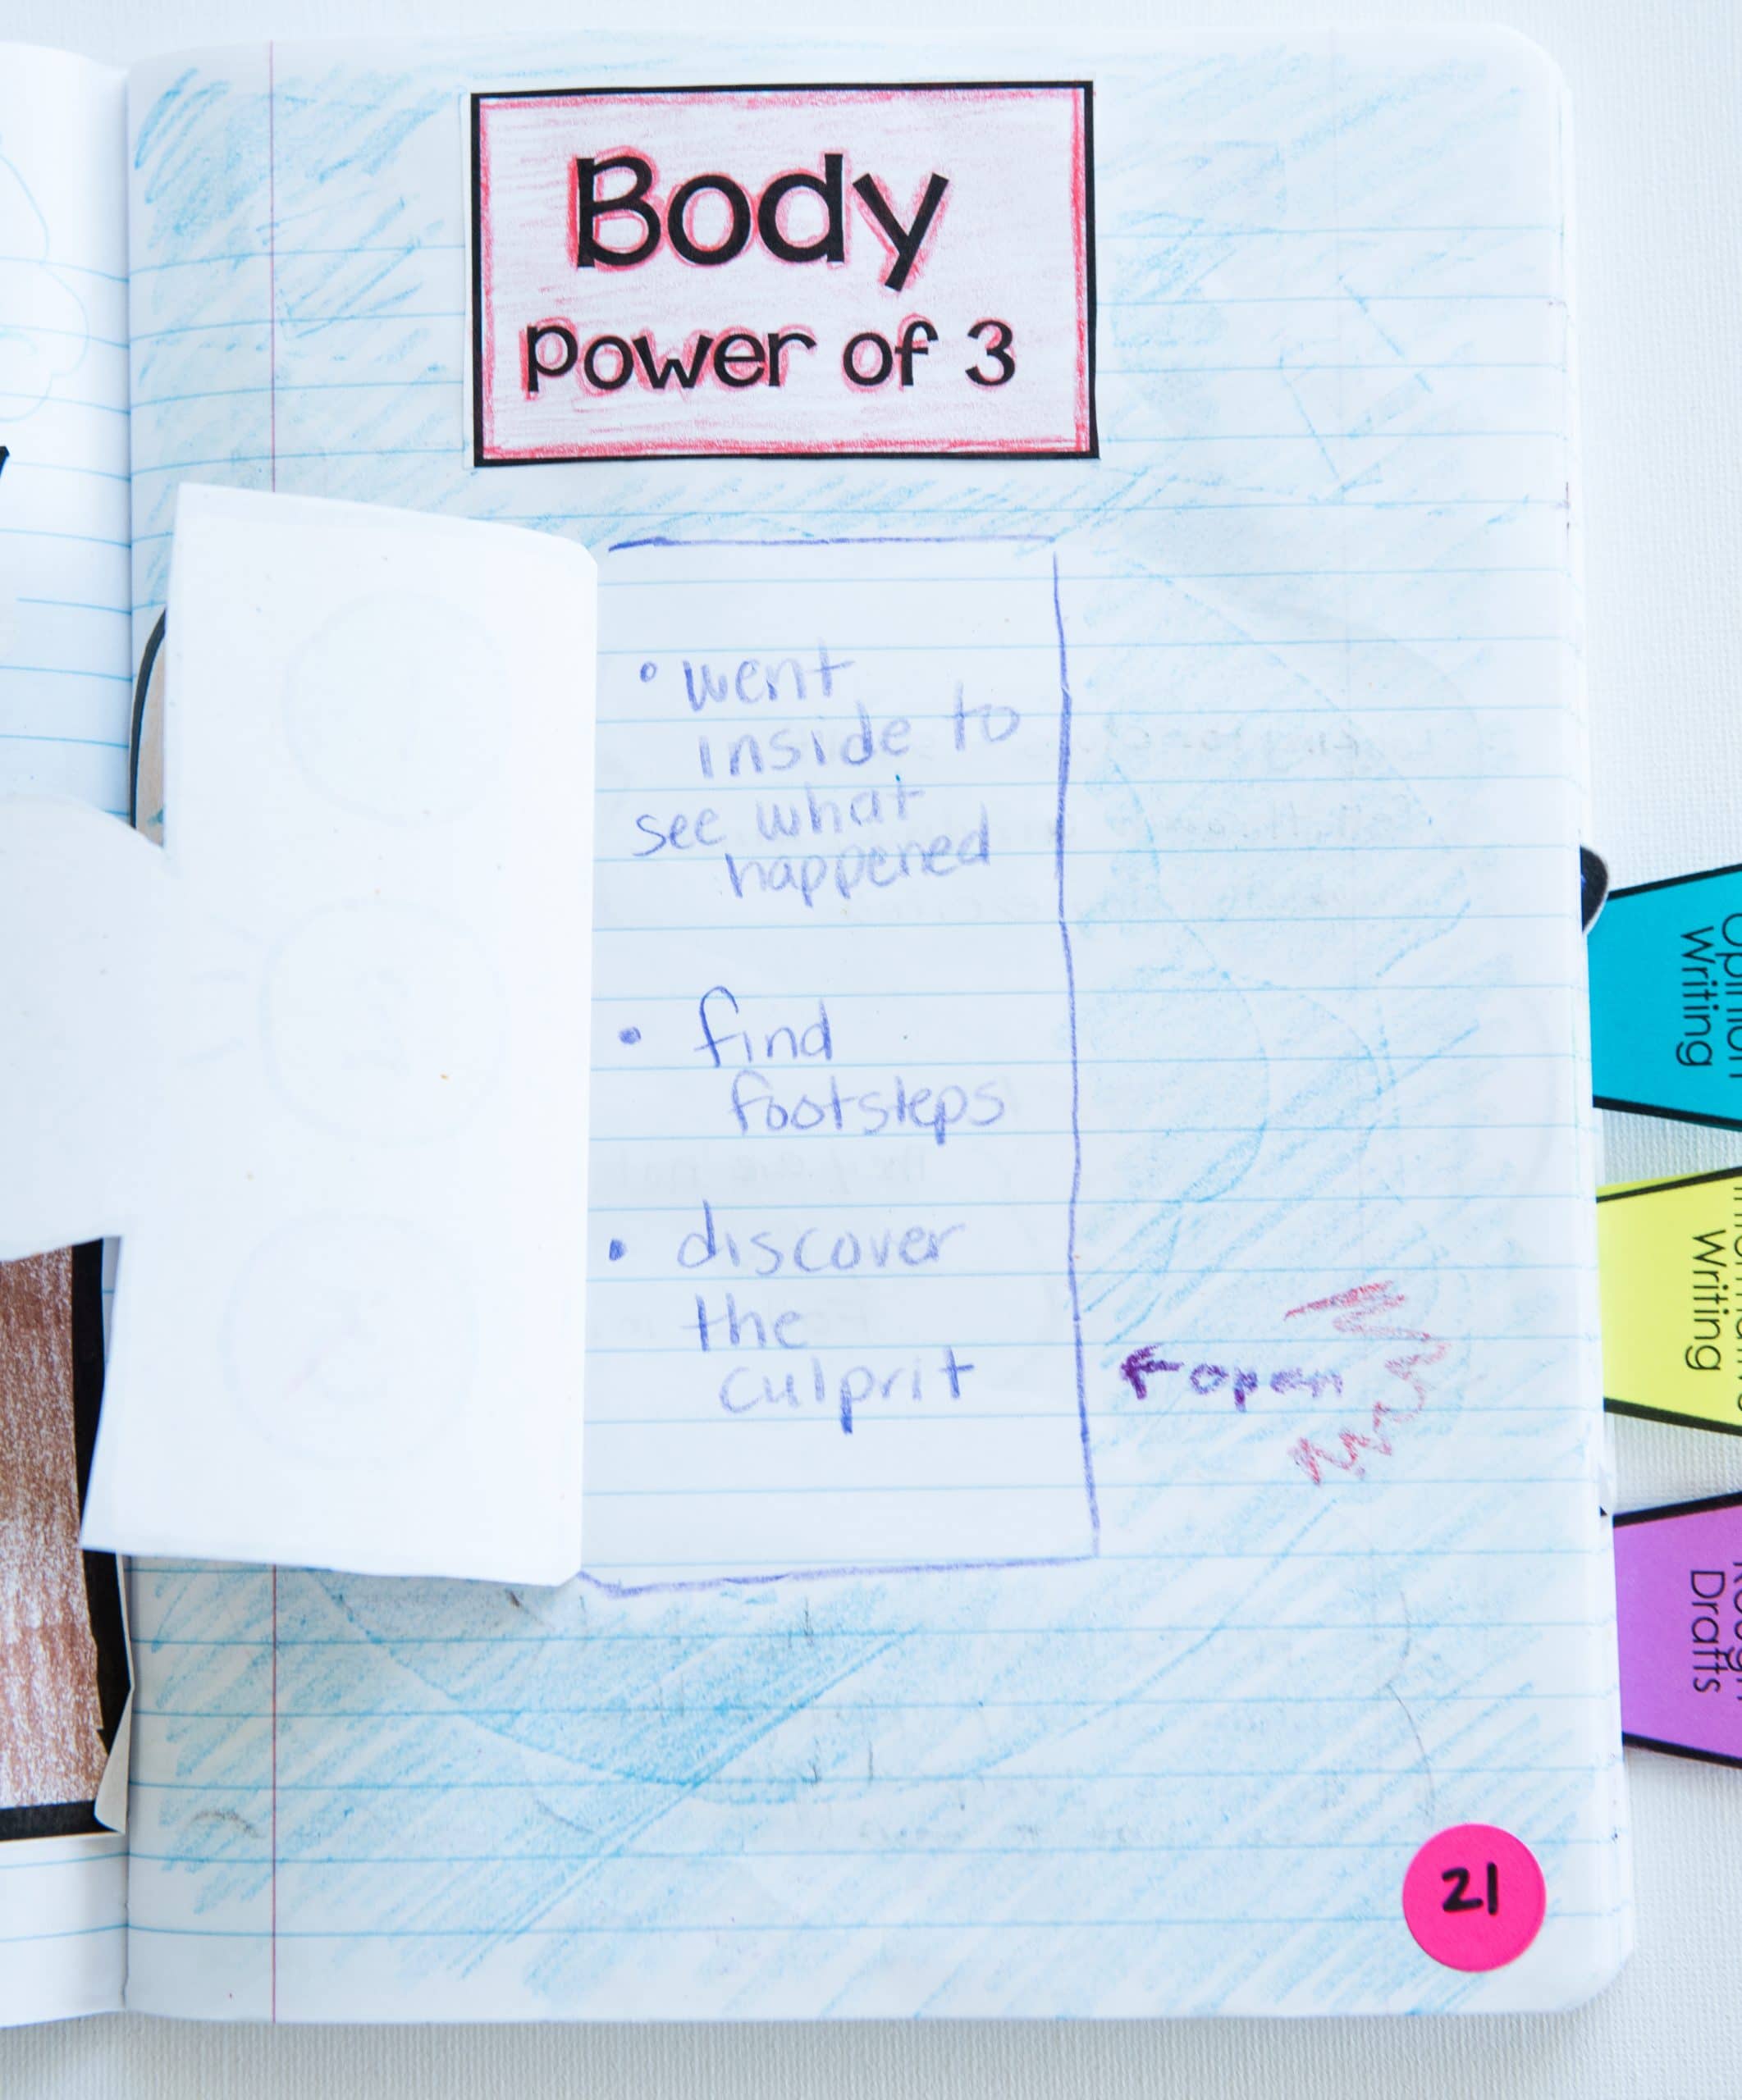 Body
power of 3
• went
inside to
see what
happened
• find
footsteps
• discover
the
culprit
←open
Opinion
Writing
Writing
Drafts
21